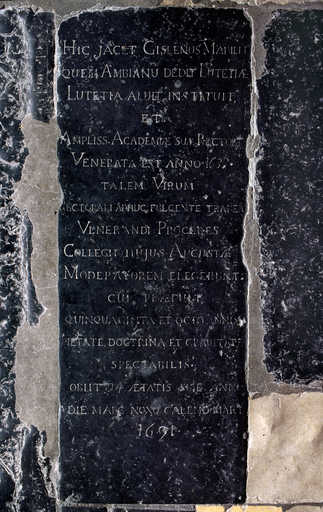 HIC JACET GISLENUS
QUEM AMBIANU DEDIT LUTETIÆ
LUTETIA ALUIT INSTITUIT
ET
AMPLISS. ACADEMIÆ SUÆ RECTORE
VENERATA EST ANNO
TALEM VIRUM
RECTORALI ADHUC FULGENTE TRABEA
VENERANDI PROCERES
COLLEGII HUJUS AUGUSTÆ
MODERATOREM ELEGERUNT
CUI PRÆFUIT
QUINQUAGINTA ET OCTO ANNIS
PIETATE DOCTRINA ET GRAVITATE
SPECTABILIS
OBIIT ÆTATIS SUÆ ANNO
DIE MANE NONO CALEND MART
1691